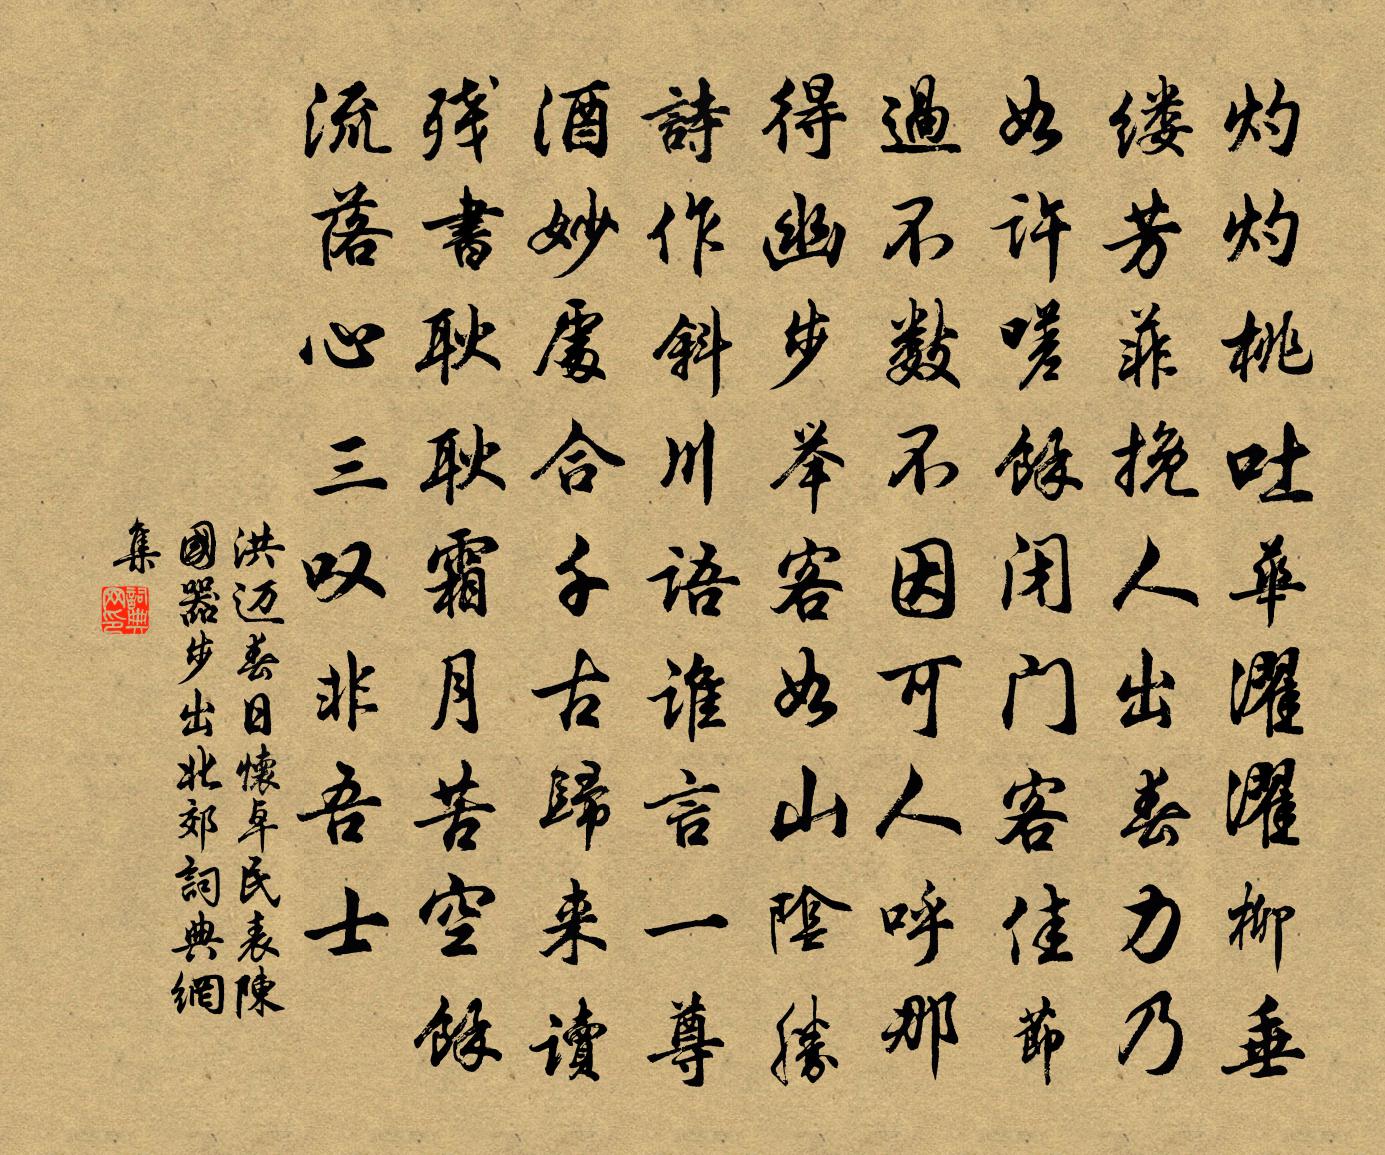 灼灼桃吐華濯濯柳垂
缕芳菲挽人出春力乃
如许嗟餘闭门客佳節
過不數不因可人呼那
得幽步举客如山陰勝
詩作斜川語谁言一尊
酒妙處合千古歸来读
残書耿耿霜月苦空餘
流落心三叹非吾士
洪迈春日懷卓民表陳
國器步出北郊詞典網
集
詞典網印